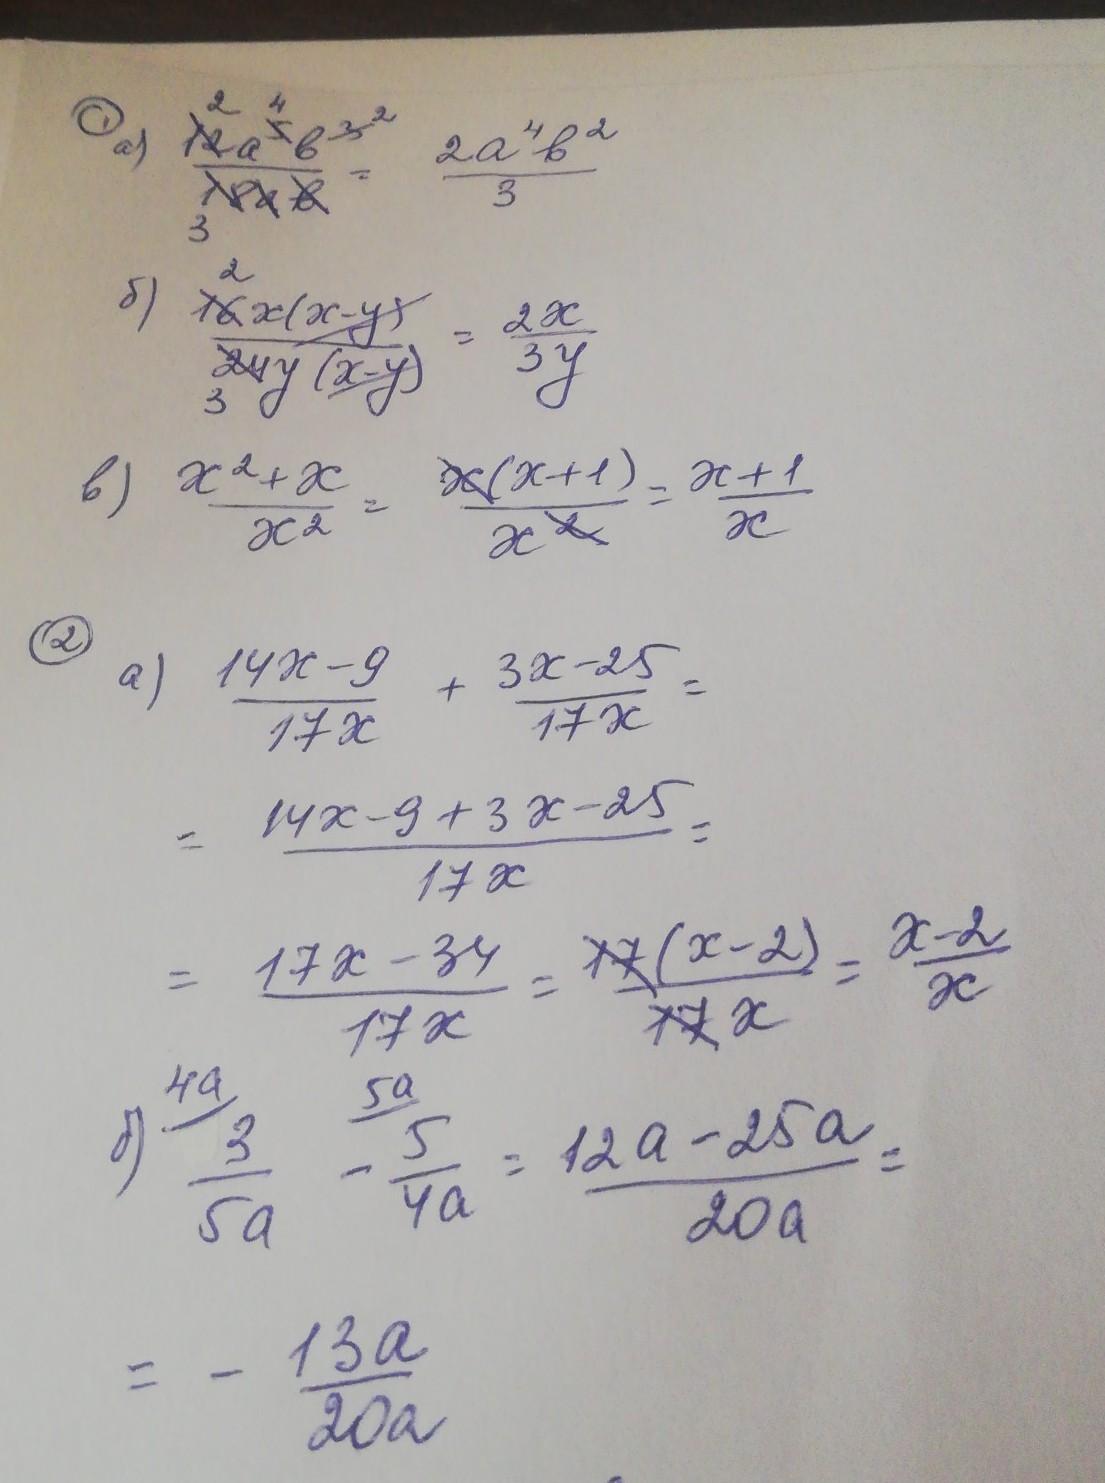 ① а) 12a⁵b³ / 18ab = 2a⁴b² / 3
б) 16x(x-y) / 24y(x-y) = 2x / 3y
в) x²+x / x² = x(x+1) / x² = x+1 / x
② а) 14x-9 / 17x + 3x-25 / 17x =
= 14x-9+3x-25 / 17x =
= 17x-34 / 17x = 17(x-2) / 17x = x-2 / x
б) 4a 3 / 5a - 5a 5 / 4a = 12a-25a / 20a =
= - 13a / 20a